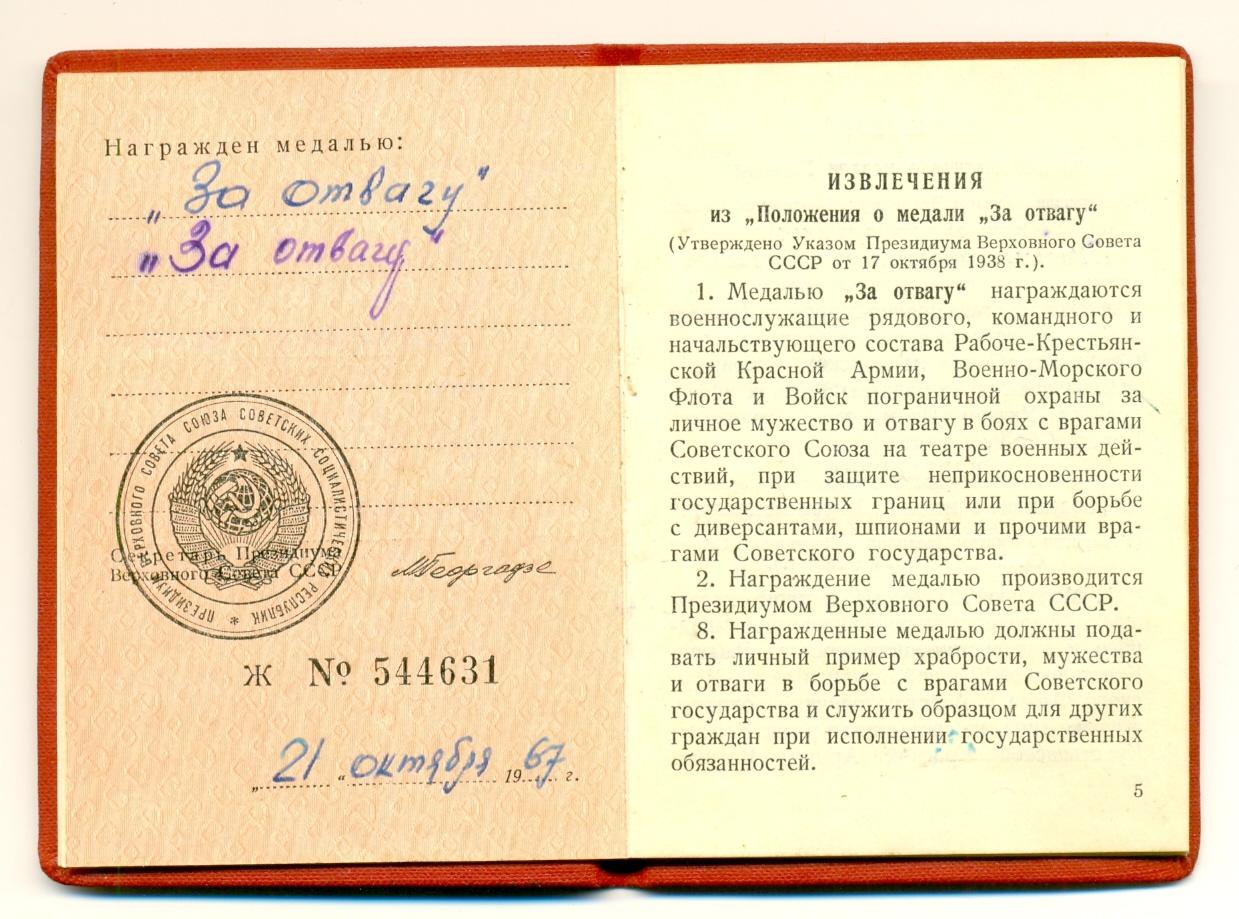 Награжден медалью:
„За отвагу"
„За отвагу"
ПРЕЗИДИУМ ВЕРХОВНОГО СОВЕТА СОЮЗА СОВЕТСКИХ СОЦИАЛИСТИЧЕСКИХ РЕСПУБЛИК *
Секретарь Президиума
Верховного Совета СССР
МГеоргадзе
Ж № 544631
„21 “ октября 1967 г.
ИЗВЛЕЧЕНИЯ
из „Положения о медали „За отвагу“
(Утверждено Указом Президиума Верховного Совета
СССР от 17 октября 1938 г.).
1. Медалью „За отвагу“ награждаются
военнослужащие рядового, командного и
начальствующего состава Рабоче-Крестьян-
ской Красной Армии, Военно-Морского
Флота и Войск пограничной охраны за
личное мужество и отвагу в боях с врагами
Советского Союза на театре военных дей-
ствий, при защите неприкосновенности
государственных границ или при борьбе
с диверсантами, шпионами и прочими вра-
гами Советского государства.
2. Награждение медалью производится
Президиумом Верховного Совета СССР.
8. Награжденные медалью должны пода-
вать личный пример храбрости, мужества
и отваги в борьбе с врагами Советского
государства и служить образцом для других
граждан при исполнении государственных
обязанностей.
5